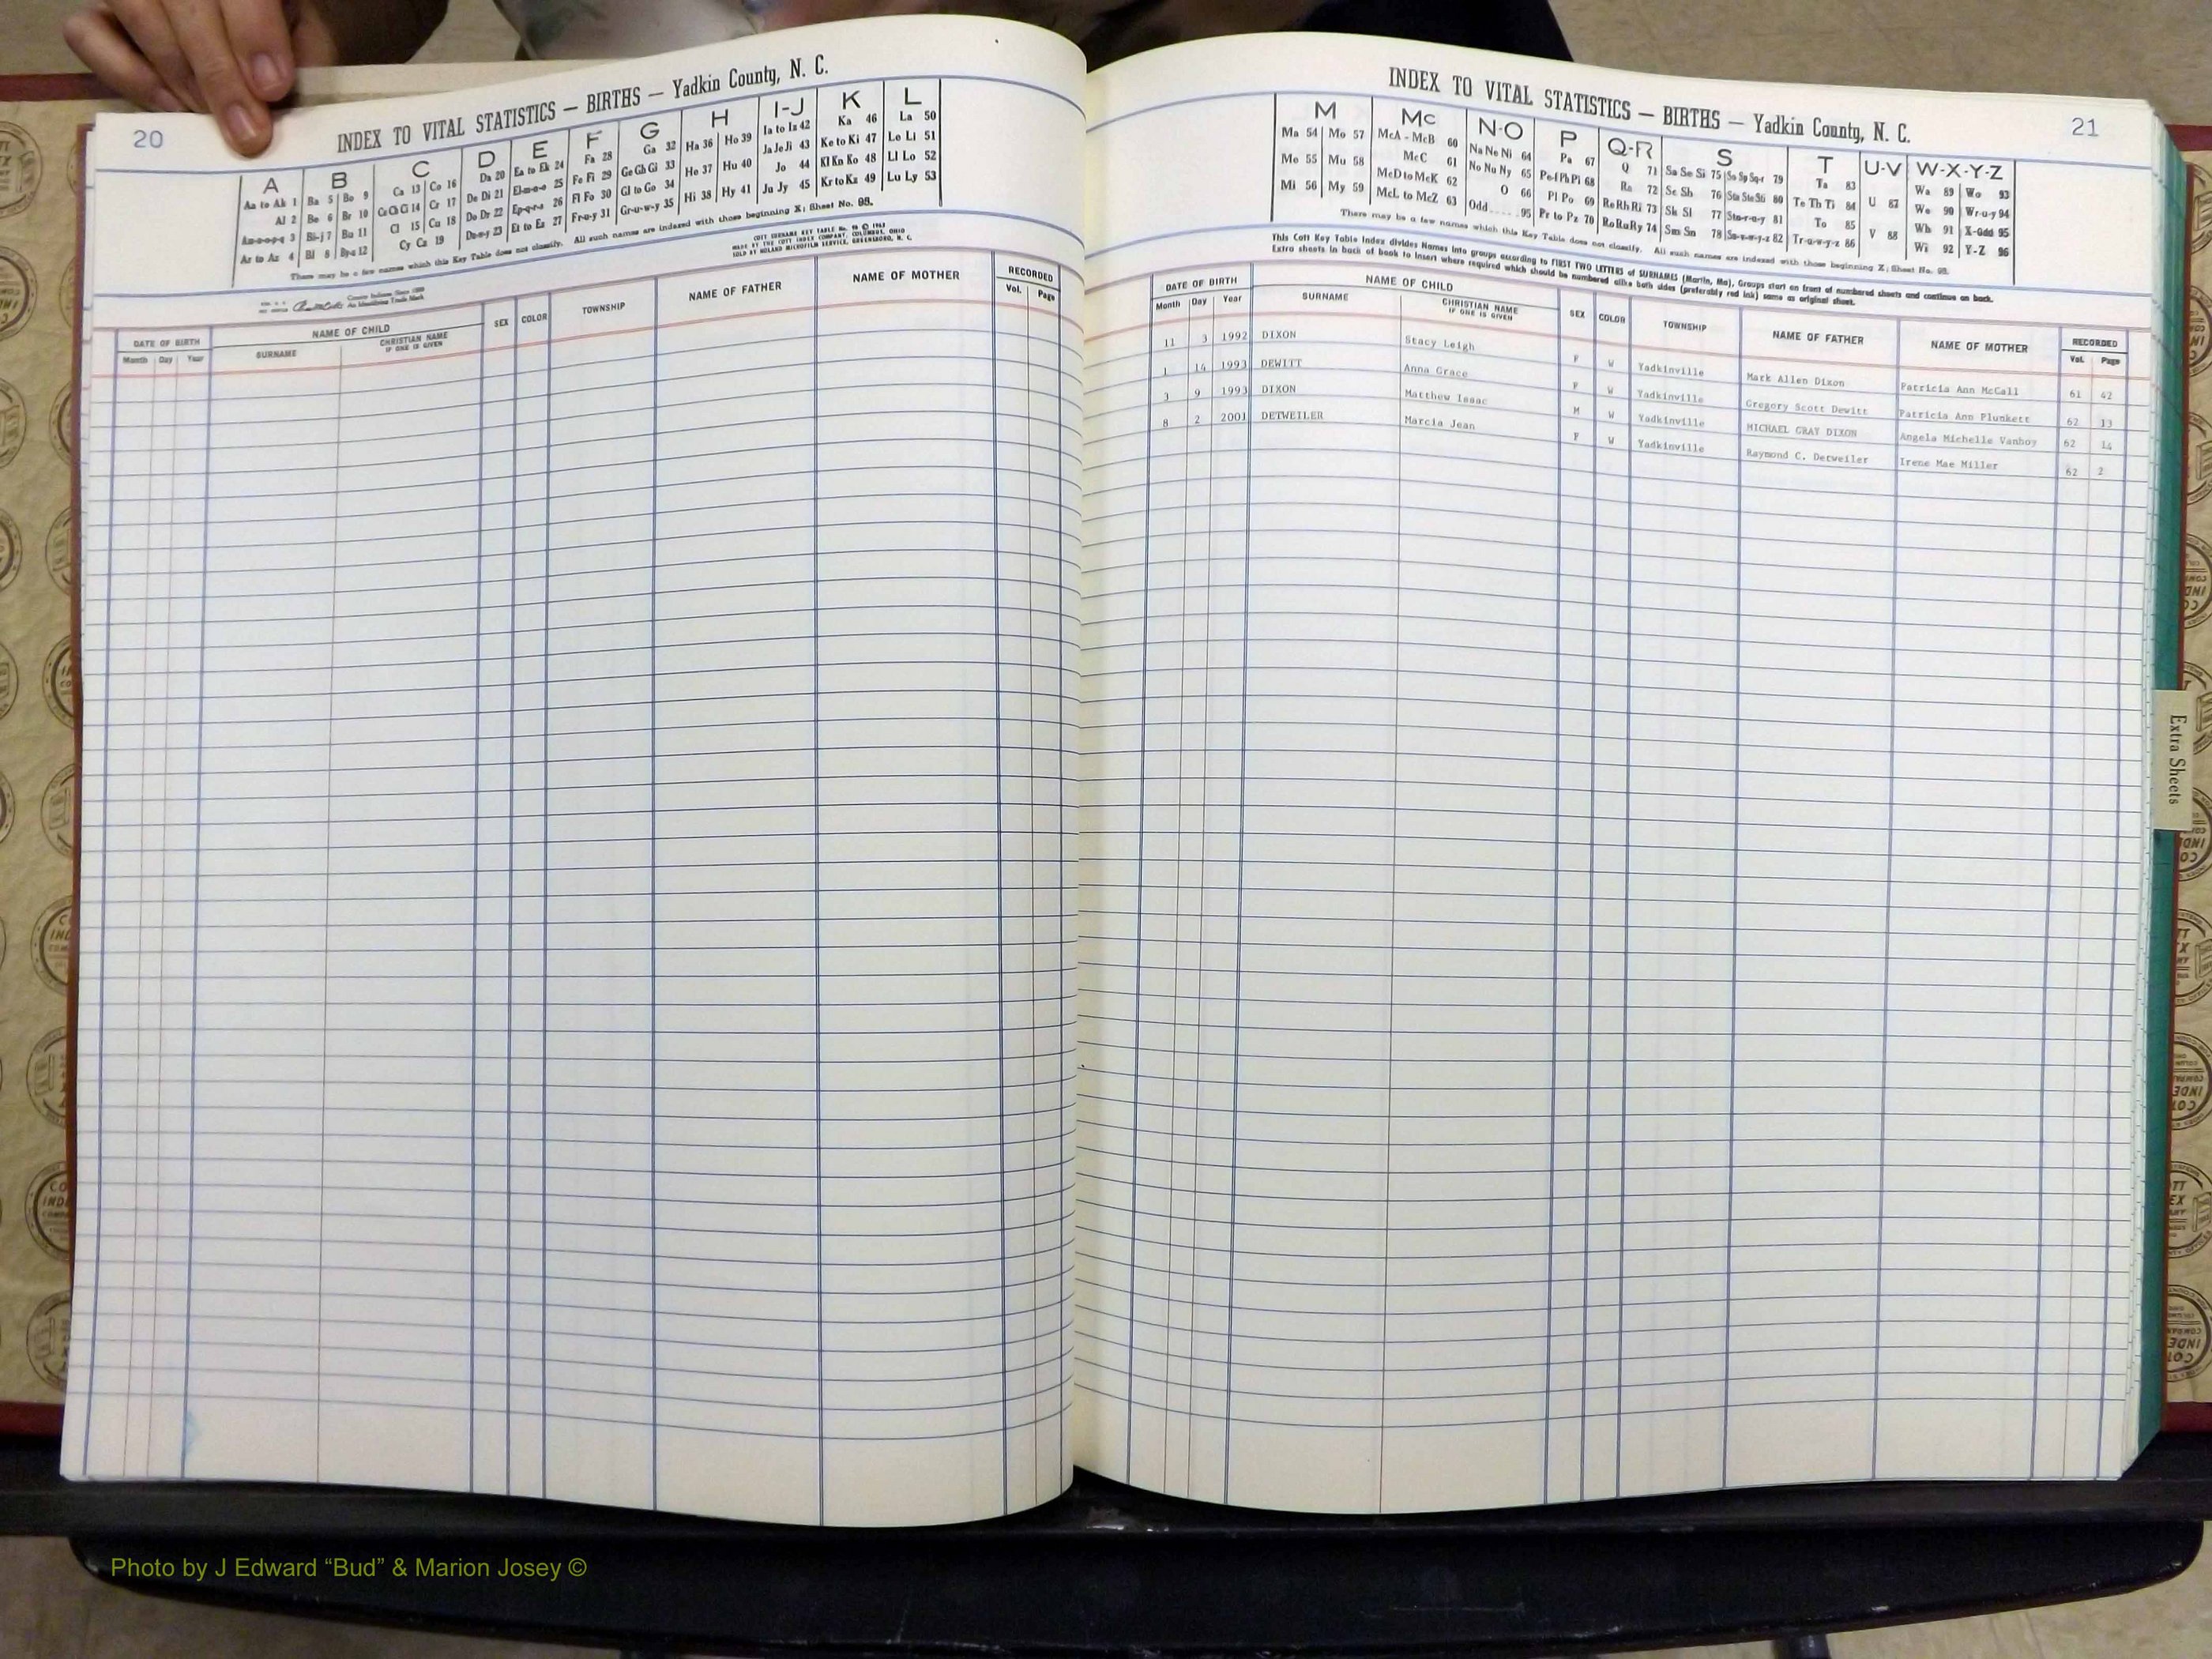 20
INDEX TO VITAL STATISTICS — BIRTHS — Yadkin County, N. C.
A B C D E F G H I-J K L
Aa to Ak 1 Ba 5 Bo 9 Ca 13 Co 16 Da 20 Ea to Ek 24 Fa 28 Ga 32 Ha 36 Ho 39 Ia to Iz 42 Ka 46 La 50
Al 2 Be 6 Br 10 Ce Ch Ci 14 Cr 17 De Di 21 El-m-n-o 25 Fe Fi 29 Ge Gh Gi 33 He 37 Hu 40 Ja Je Ji 43 Ke to Ki 47 Le Li 51
Am-n-o-p-q 3 Bi-j 7 Bu 11 Cl 15 Cu 18 Do Dr 22 Ep-q-r-s 26 Fl Fo 30 Gl to Go 34 Hi 38 Hy 41 Jo 44 Kl Kn Ko 48 Ll Lo 52
Ar to Az 4 Bl 8 By-z 12 Cy Cz 19 Du-w-y 23 Et to Ez 27 Fr-u-y 31 Gr-u-w-y 35 Ju Jy 45 Kr to Kz 49 Lu Ly 53
There may be a few names which this Key Table does not classify. All such names are indexed with those beginning X; Sheet No. 98.
MADE BY THE COTT INDEX COMPANY, COLUMBUS, OHIO
SOLD BY HOLAND MICROFILM SERVICE, GREENSBORO, N. C.
DATE OF BIRTH NAME OF CHILD SEX COLOR TOWNSHIP NAME OF FATHER NAME OF MOTHER RECORDED
Month Day Year SURNAME CHRISTIAN NAME IF ONE IS GIVEN Vol. Page
INDEX TO VITAL STATISTICS — BIRTHS — Yadkin County, N. C.
21
M Mc N-O P Q-R S T U-V W-X-Y-Z
Ma 54 Mo 57 McA - McB 60 Na Ne Ni 64 Pa 67 Q 71 Sa Se Si 75 So Sp Sq-r 79 Ta 83 U 87 Wa 89 Wo 93
Me 55 Mu 58 McC 61 No Nu Ny 65 Pe-f Ph Pi 68 Ra 72 Sc Sh 76 Sta Ste Sti 80 Te Th Ti 84 V 88 We 90 Wr-u-y 94
Mi 56 My 59 McD to McK 62 O 66 Pl Po 69 Re Rh Ri 73 Sk Sl 77 Sto-r-u-y 81 To 85 Wh 91 X-Odd 95
McL to McZ 63 Odd ..... 95 Pr to Pz 70 Ro Ru Ry 74 Sm Sn 78 Su-v-w-y-z 82 Tr-u-w-y-z 86 Wi 92 Y-Z 96
There may be a few names which this Key Table does not classify. All such names are indexed with those beginning X; Sheet No. 98.
This Cott Key Table Index divides Names into groups according to FIRST TWO LETTERS of SURNAMES (Martin, Ma), Groups start on front of numbered sheets and continue on back.
Extra sheets in back of book to insert where required which should be numbered alike both sides (preferably red ink) same as original sheet.
DATE OF BIRTH NAME OF CHILD SEX COLOR TOWNSHIP NAME OF FATHER NAME OF MOTHER RECORDED
Month Day Year SURNAME CHRISTIAN NAME IF ONE IS GIVEN Vol. Page
11 3 1992 DIXON Stacy Leigh F W Yadkinville Mark Allen Dixon Patricia Ann McCall 61 42
1 14 1993 DEWITT Anna Grace F W Yadkinville Gregory Scott Dewitt Patricia Ann Plunkett 62 13
3 9 1993 DIXON Matthew Isaac M W Yadkinville MICHAEL GRAY DIXON Angela Michelle Vanhoy 62 14
8 2 2001 DETWEILER Marcia Jean F W Yadkinville Raymond C. Detweiler Irene Mae Miller 62 2
Extra Sheets
Photo by J Edward “Bud” & Marion Josey ©